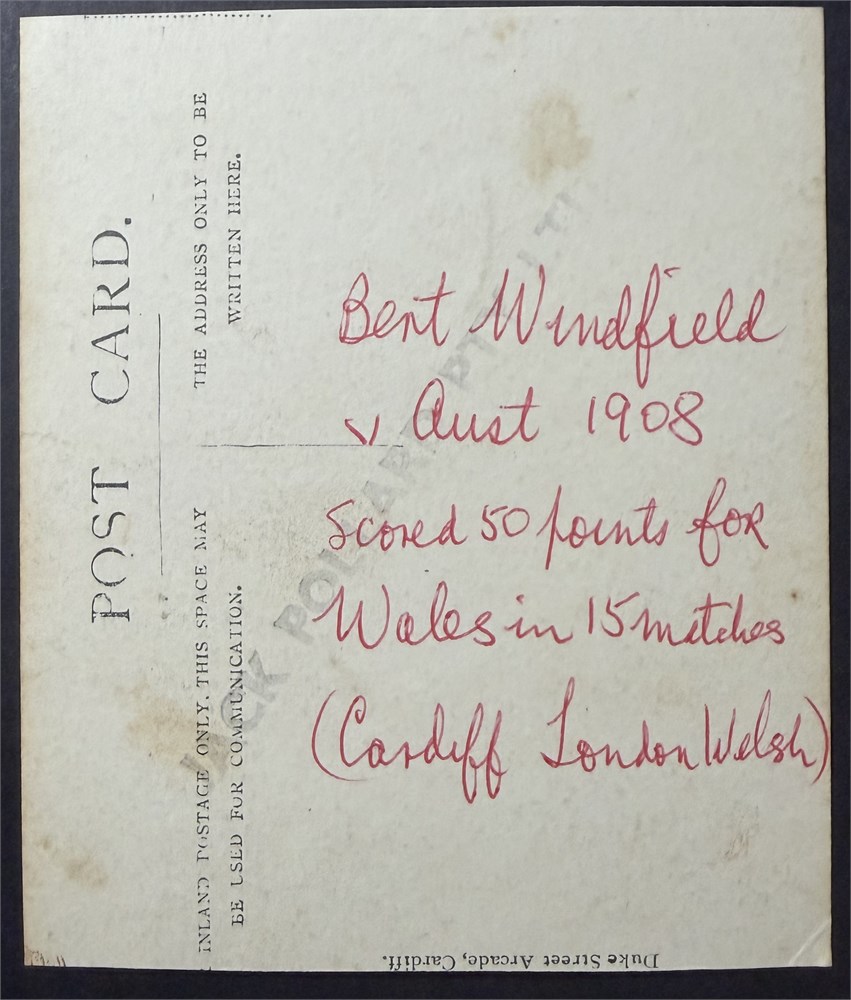 POST CARD.
THE ADDRESS ONLY TO BE
WRITTEN HERE.
INLAND POSTAGE ONLY, THIS SPACE MAY
BE USED FOR COMMUNICATION.
Bert Windfield
v Aust 1908
Scored 50 points for
Wales in 15 matches
(Cardiff London Welsh)
Duke Street Arcade, Cardiff.